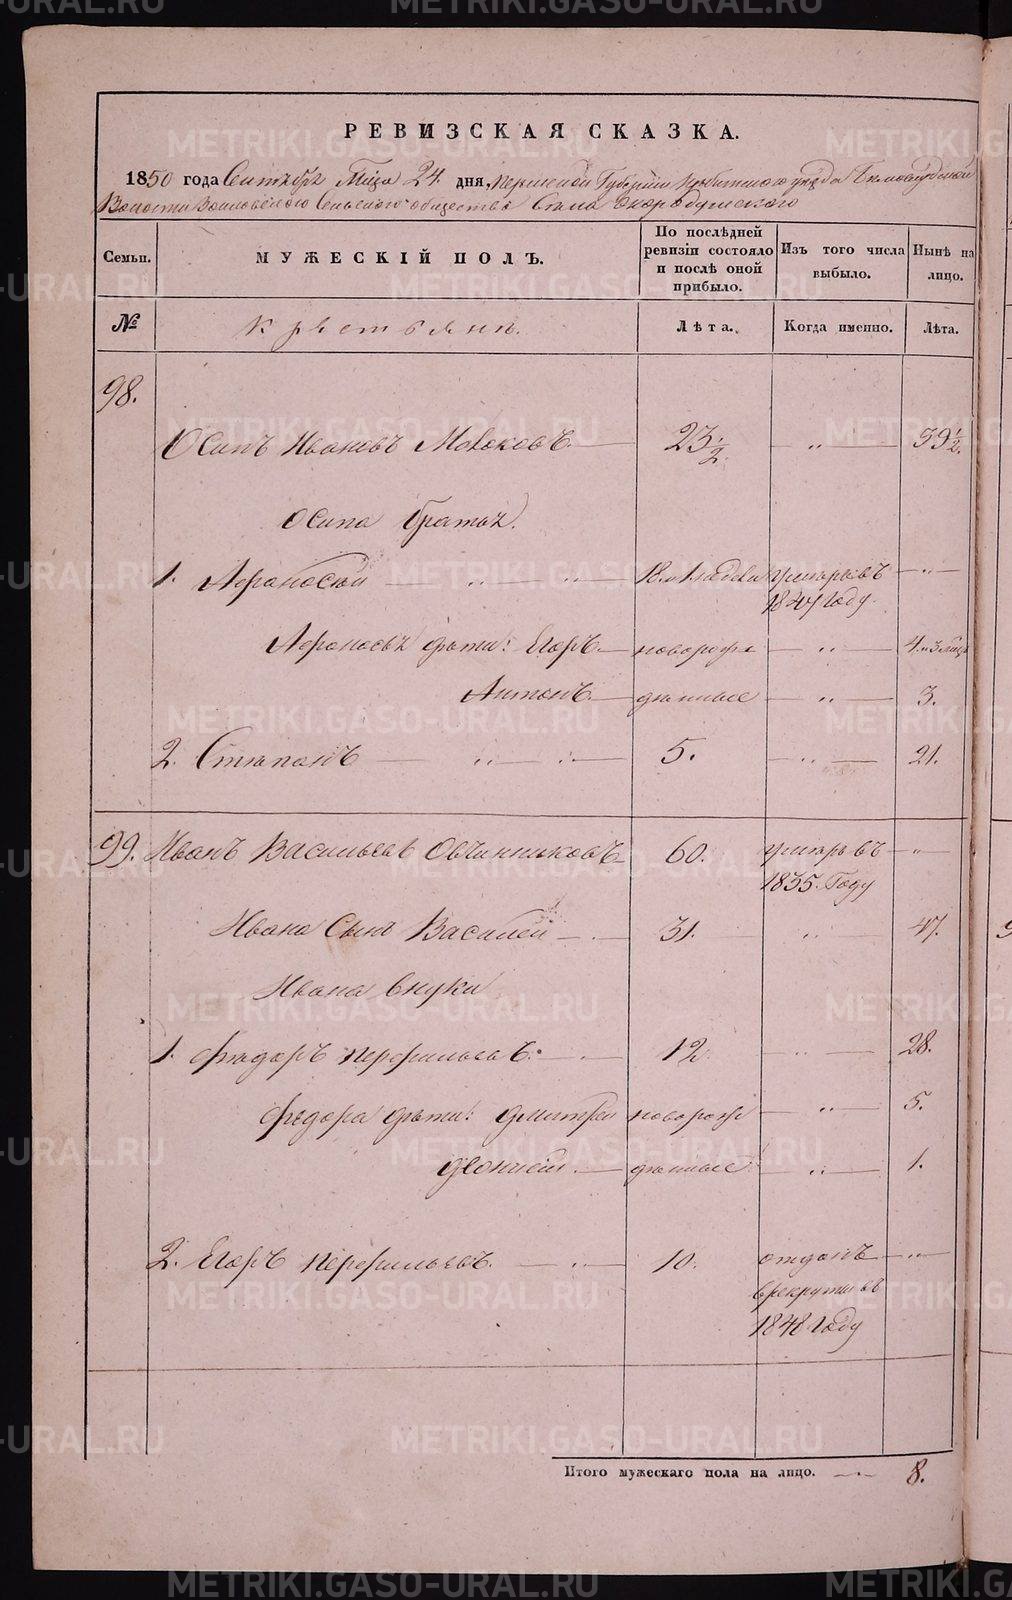 РЕВИЗСКАЯ СКАЗКА.
1850 года Сентября Мца 24 дня, Пермской Губернии Ирбитского уезда Белослудской
Волости Сельского общества Села Скородумского
Семьи. МУЖЕСКІЙ ПОЛЪ. По послѣдней ревизіи состояло и послѣ оной прибыло. Изъ того числа выбыло. Нынѣ на лицо.
№ Крестьяне. Лѣта. Когда именно. Лѣта.
98.
Осипъ Ивановъ 23 1/2 " 39 1/2.
Осипа братья.
1. Афонасей " " 18. умеръ въ "
1847 году.
Афонасья дети: Егоръ новорож " 4. и 3 мца
Антонъ денные " 3.
2. Степанъ " " 5. " 21.
99. Иванъ Васильевъ Овчинниковъ 60. умеръ въ "
1835. Году
Ивана Сынъ Василей 31. " 47.
Ивана внуки
1. Федоръ Перфильевъ. 12. " 28.
Федора дети: Дмитрей новорож " 5.
Деонисей денные " 1.
2. Егоръ Перфильевъ. " 10. отданъ "
в рекруты въ
1848 году
Итого мужескаго пола на лицо. 8.
METRIKI.GASO-URAL.RU